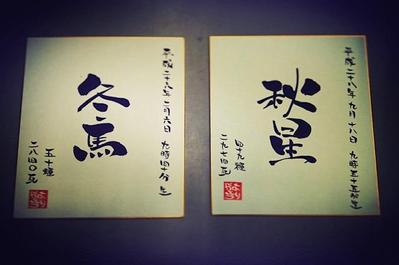 平成二十八年九月十八日 九時五十五分生
秋星
四十九糎
二九七四瓦
平成二十八年二月六日 九時四十分生
冬馬
五十糎
二八四〇瓦